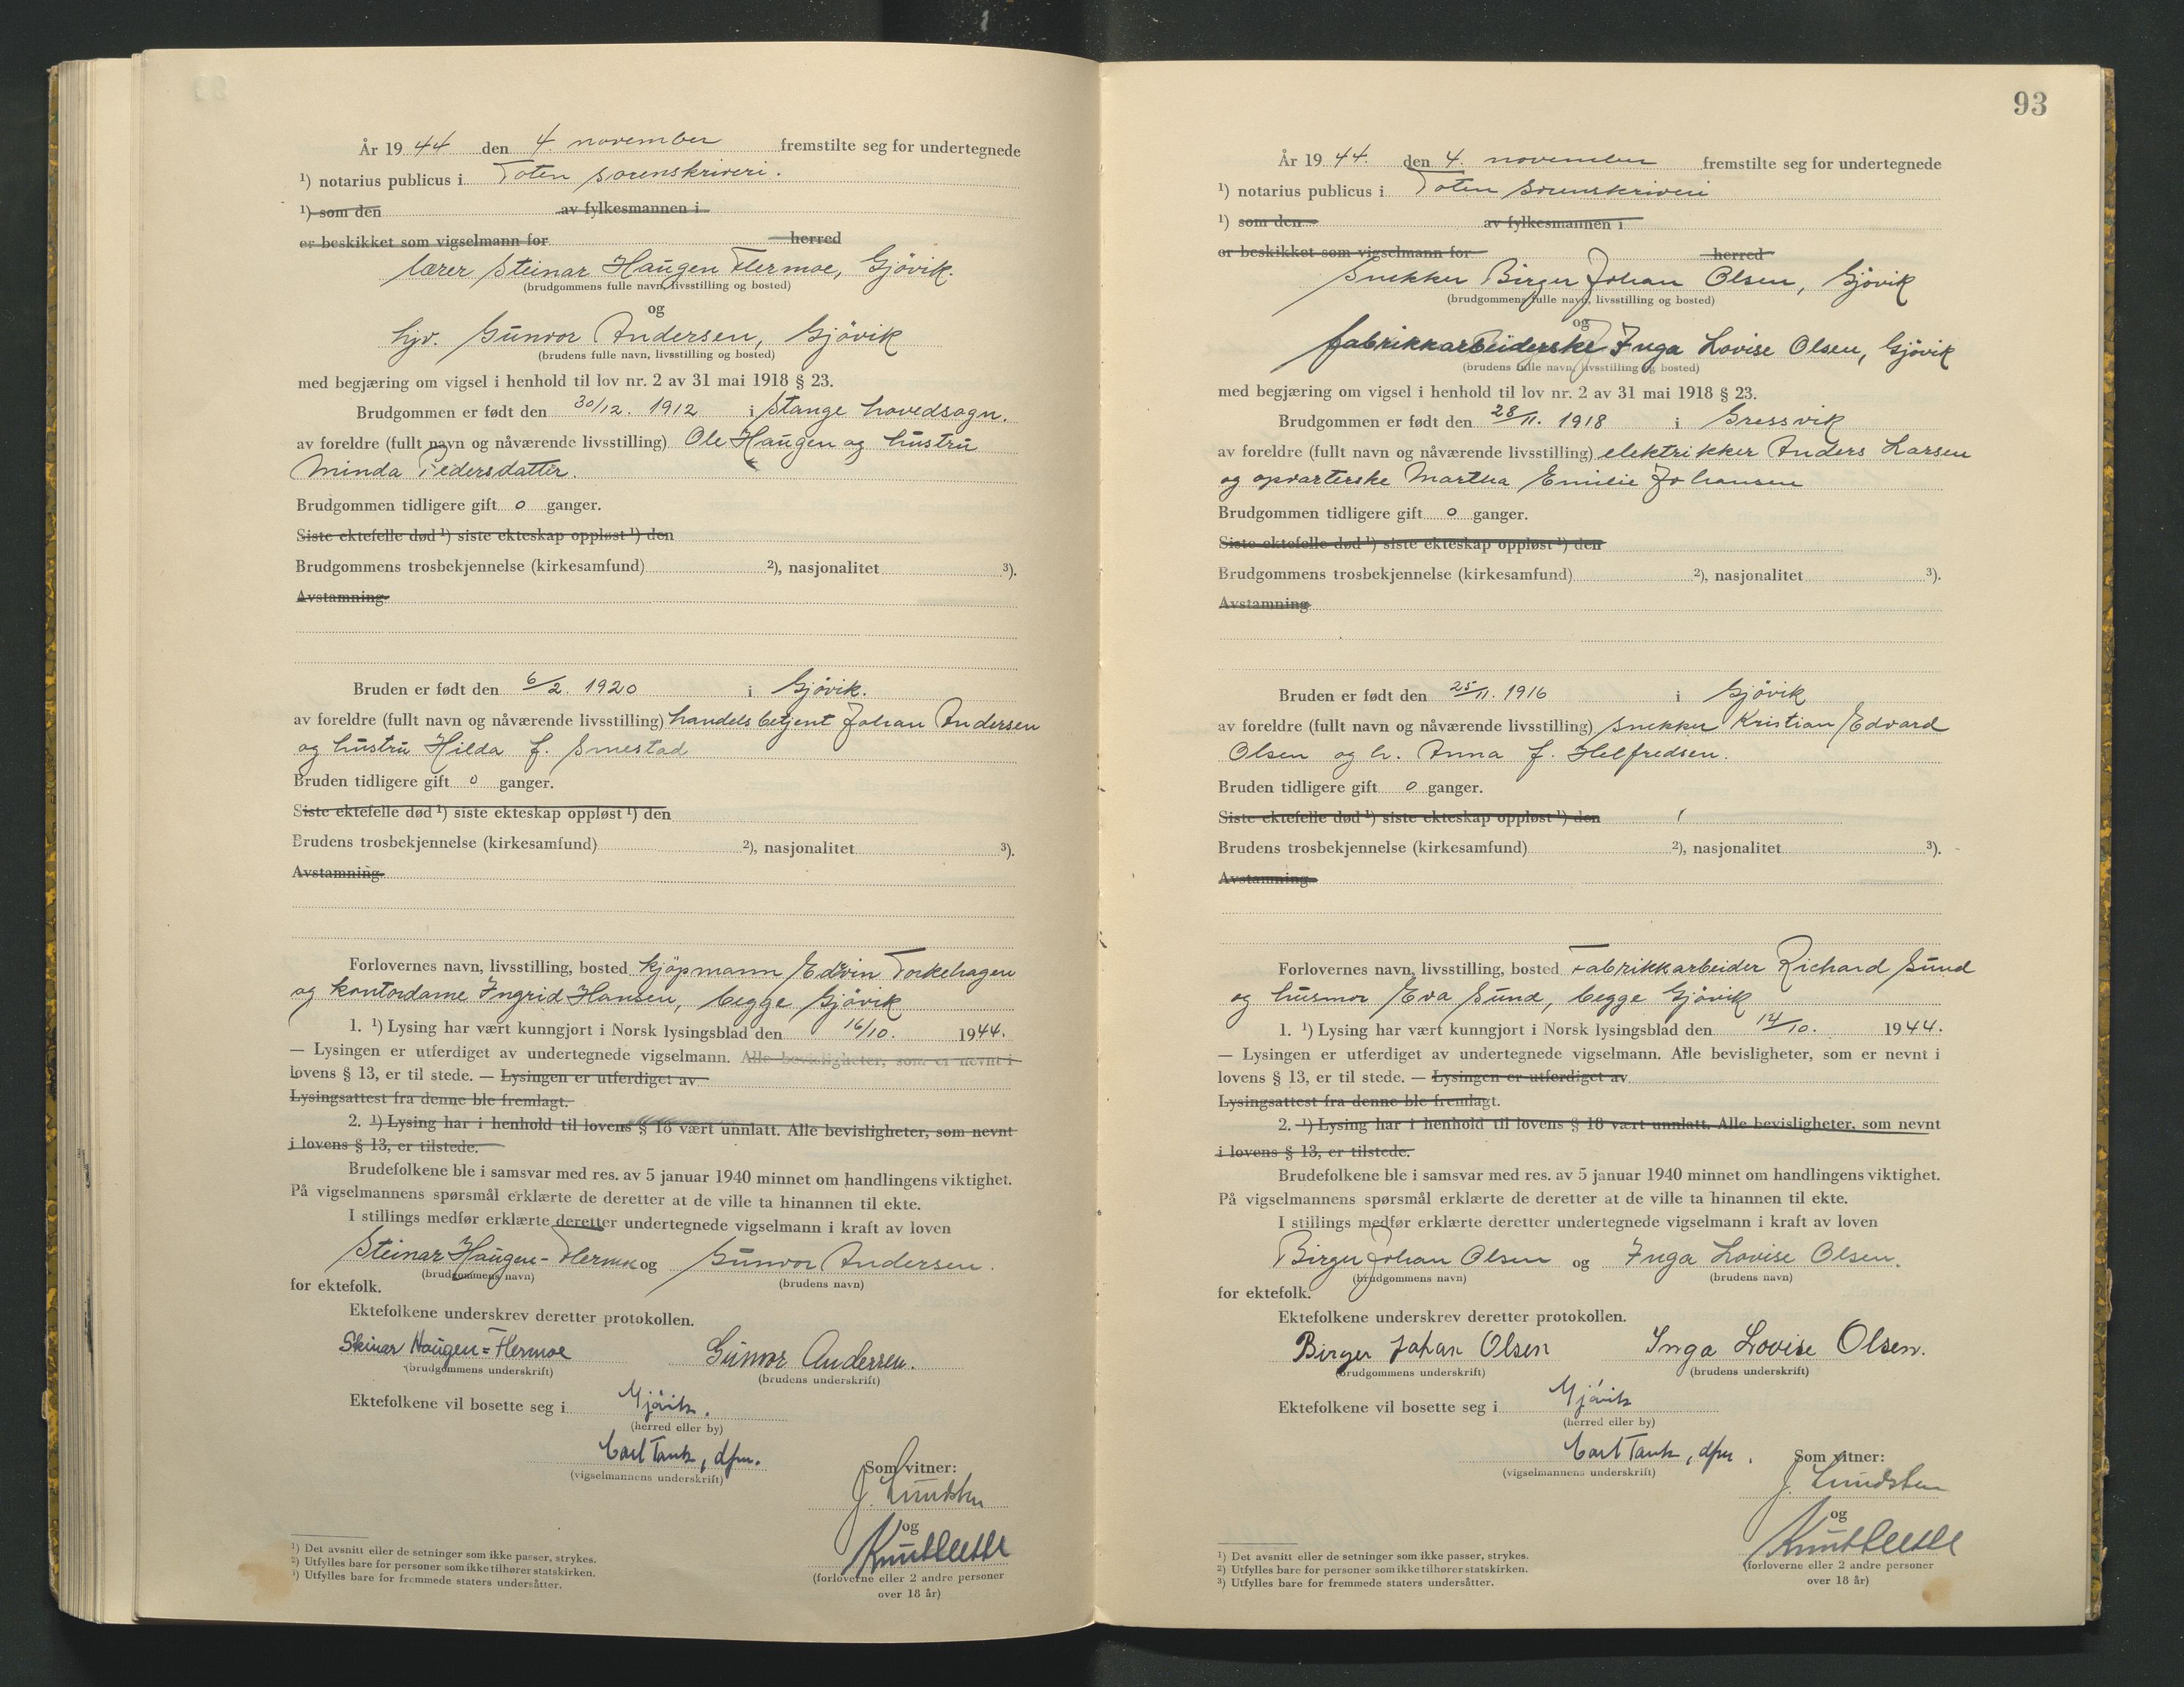 År 1944 den 4. november fremstilte seg for undertegnede
¹) notarius publicus i Toten sorenskriveri.
¹) som den av fylkesmannen i
er beskikket som vigselmann for herred
lærer Steinar Haugen Flermoe, Gjøvik.
(brudgommens fulle navn, livsstilling og bosted)
og
hjv. Gunvor Andersen, Gjøvik
(brudens fulle navn, livsstilling og bosted)
med begjæring om vigsel i henhold til lov nr. 2 av 31 mai 1918 § 23.
Brudgommen er født den 30/12. 1912 i Stange hovedsogn.
av foreldre (fullt navn og nåværende livsstilling) Ole Haugen og hustru
Minda Pedersdatter.
Brudgommen tidligere gift 0 ganger.
Siste ektefelle død ¹) siste ekteskap oppløst ¹) den
Brudgommens trosbekjennelse (kirkesamfund) ²), nasjonalitet ³).
Avstamning
Bruden er født den 6/2. 1920 i Gjøvik.
av foreldre (fullt navn og nåværende livsstilling) handelsbetjent Johan Andersen
og hustru Hilda f. Smestad
Bruden tidligere gift 0 ganger.
Siste ektefelle død ¹) siste ekteskap oppløst ¹) den
Brudens trosbekjennelse (kirkesamfund) ²), nasjonalitet ³).
Avstamning
Forlovernes navn, livsstilling, bosted kjøpmann Edvin Torkehagen
og kontordame Ingrid Hansen, begge Gjøvik
1. ¹) Lysing har vært kunngjort i Norsk lysingsblad den 16/10. 1944.
— Lysingen er utferdiget av undertegnede vigselmann. Alle bevisligheter, som er nevnt i
lovens § 13, er til stede. — Lysingen er utferdiget av
Lysingsattest fra denne ble fremlagt.
2. ¹) Lysing har i henhold til lovens § 18 vært unnlatt. Alle bevisligheter, som nevnt
i lovens § 13, er tilstede.
Brudefolkene ble i samsvar med res. av 5 januar 1940 minnet om handlingens viktighet.
På vigselmannens spørsmål erklærte de deretter at de ville ta hinannen til ekte.
I stillings medfør erklærte deretter undertegnede vigselmann i kraft av loven
Steinar Haugen-Flermoe og Gunvor Andersen.
(brudgommens navn) (brudens navn)
for ektefolk.
Ektefolkene underskrev deretter protokollen.
Steinar Haugen=Flermoe Gunvor Andersen.
(brudgommens underskrift) (brudens underskrift)
Ektefolkene vil bosette seg i Gjøvik.
(herred eller by)
Carl Tank, dfm.
(vigselmannens underskrift)
Som vitner:
J. Lundsten
og
(forloverne eller 2 andre personer
over 18 år)
¹) Det avsnitt eller de setninger som ikke passer, strykes.
²) Utfylles bare for personer som ikke tilhører statskirken.
³) Utfylles bare for fremmede staters undersåtter.
93
År 1944. den 4. november fremstilte seg for undertegnede
¹) notarius publicus i Toten sorenskriveri
¹) som den av fylkesmannen i
er beskikket som vigselmann for herred
Snekker Birger Johan Olsen, Gjøvik
(brudgommens fulle navn, livsstilling og bosted)
og
fabrikkarbeiderske Inga Lovise Olsen, Gjøvik
(brudens fulle navn, livsstilling og bosted)
med begjæring om vigsel i henhold til lov nr. 2 av 31 mai 1918 § 23.
Brudgommen er født den 28/11. 1918 i Gressvik
av foreldre (fullt navn og nåværende livsstilling) elektrikker Anders Larsen
og opvarterske Martha Emilie Johansen
Brudgommen tidligere gift 0 ganger.
Siste ektefelle død ¹) siste ekteskap oppløst ¹) den
Brudgommens trosbekjennelse (kirkesamfund) ²), nasjonalitet ³).
Avstamning
Bruden er født den 25/11. 1916 i Gjøvik
av foreldre (fullt navn og nåværende livsstilling) snekker Kristian Edvard
Olsen og h. Anna f. Helfredsen.
Bruden tidligere gift 0 ganger.
Siste ektefelle død ¹) siste ekteskap oppløst ¹) den
Brudens trosbekjennelse (kirkesamfund) ²), nasjonalitet ³).
Avstamning
Forlovernes navn, livsstilling, bosted Fabrikkarbeider Richard Sund
og husmor Eva Sund, begge Gjøvik
1. ¹) Lysing har vært kunngjort i Norsk lysingsblad den 14/10. 1944.
— Lysingen er utferdiget av undertegnede vigselmann. Alle bevisligheter, som er nevnt i
lovens § 13, er til stede. — Lysingen er utferdiget av
Lysingsattest fra denne ble fremlagt.
2. ¹) Lysing har i henhold til lovens § 18 vært unnlatt. Alle bevisligheter, som nevnt
i lovens § 13, er tilstede.
Brudefolkene ble i samsvar med res. av 5 januar 1940 minnet om handlingens viktighet.
På vigselmannens spørsmål erklærte de deretter at de ville ta hinannen til ekte.
I stillings medfør erklærte deretter undertegnede vigselmann i kraft av loven
Birger Johan Olsen og Inga Lovise Olsen.
(brudgommens navn) (brudens navn)
for ektefolk.
Ektefolkene underskrev deretter protokollen.
Birger Johan Olsen Inga Lovise Olsen.
(brudgommens underskrift) (brudens underskrift)
Ektefolkene vil bosette seg i Gjøvik
(herred eller by)
Carl Tank, dfm.
(vigselmannens underskrift)
Som vitner:
J. Lundsten
og
(forloverne eller 2 andre personer
over 18 år)
¹) Det avsnitt eller de setninger som ikke passer, strykes.
²) Utfylles bare for personer som ikke tilhører statskirken.
³) Utfylles bare for fremmede staters undersåtter.